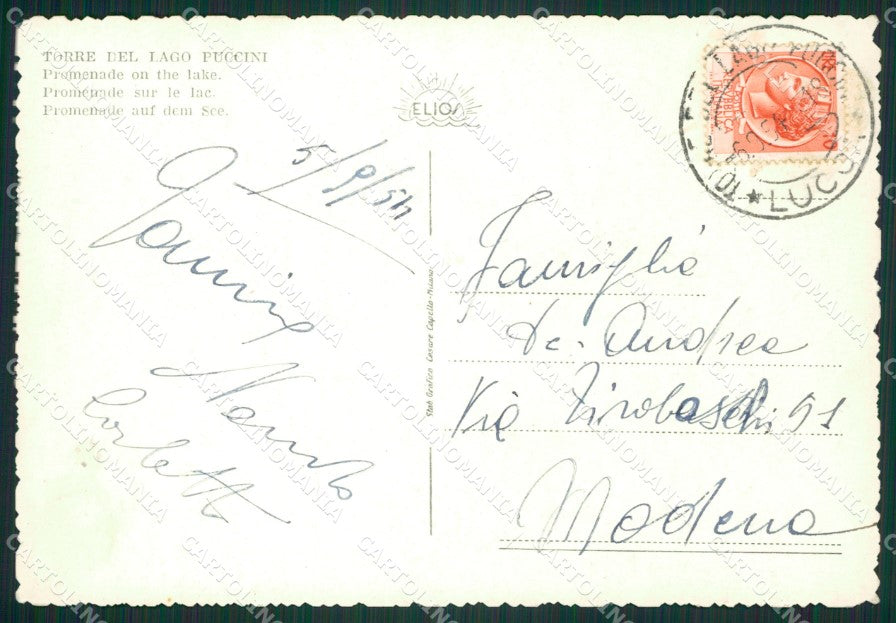 TORRE DEL LAGO PUCCINI
Promenade on the lake.
Promenade sur le lac.
Promenade auf dem See.
ELIOS
5/9/54
Famiglia
De Andrea
Via Tiraboschi 91
Modena
Stab. Grafico Cesare Capello-Milano
TORRE DEL LAGO PUCCINI
LUCCA
CARTOLINOMANIA